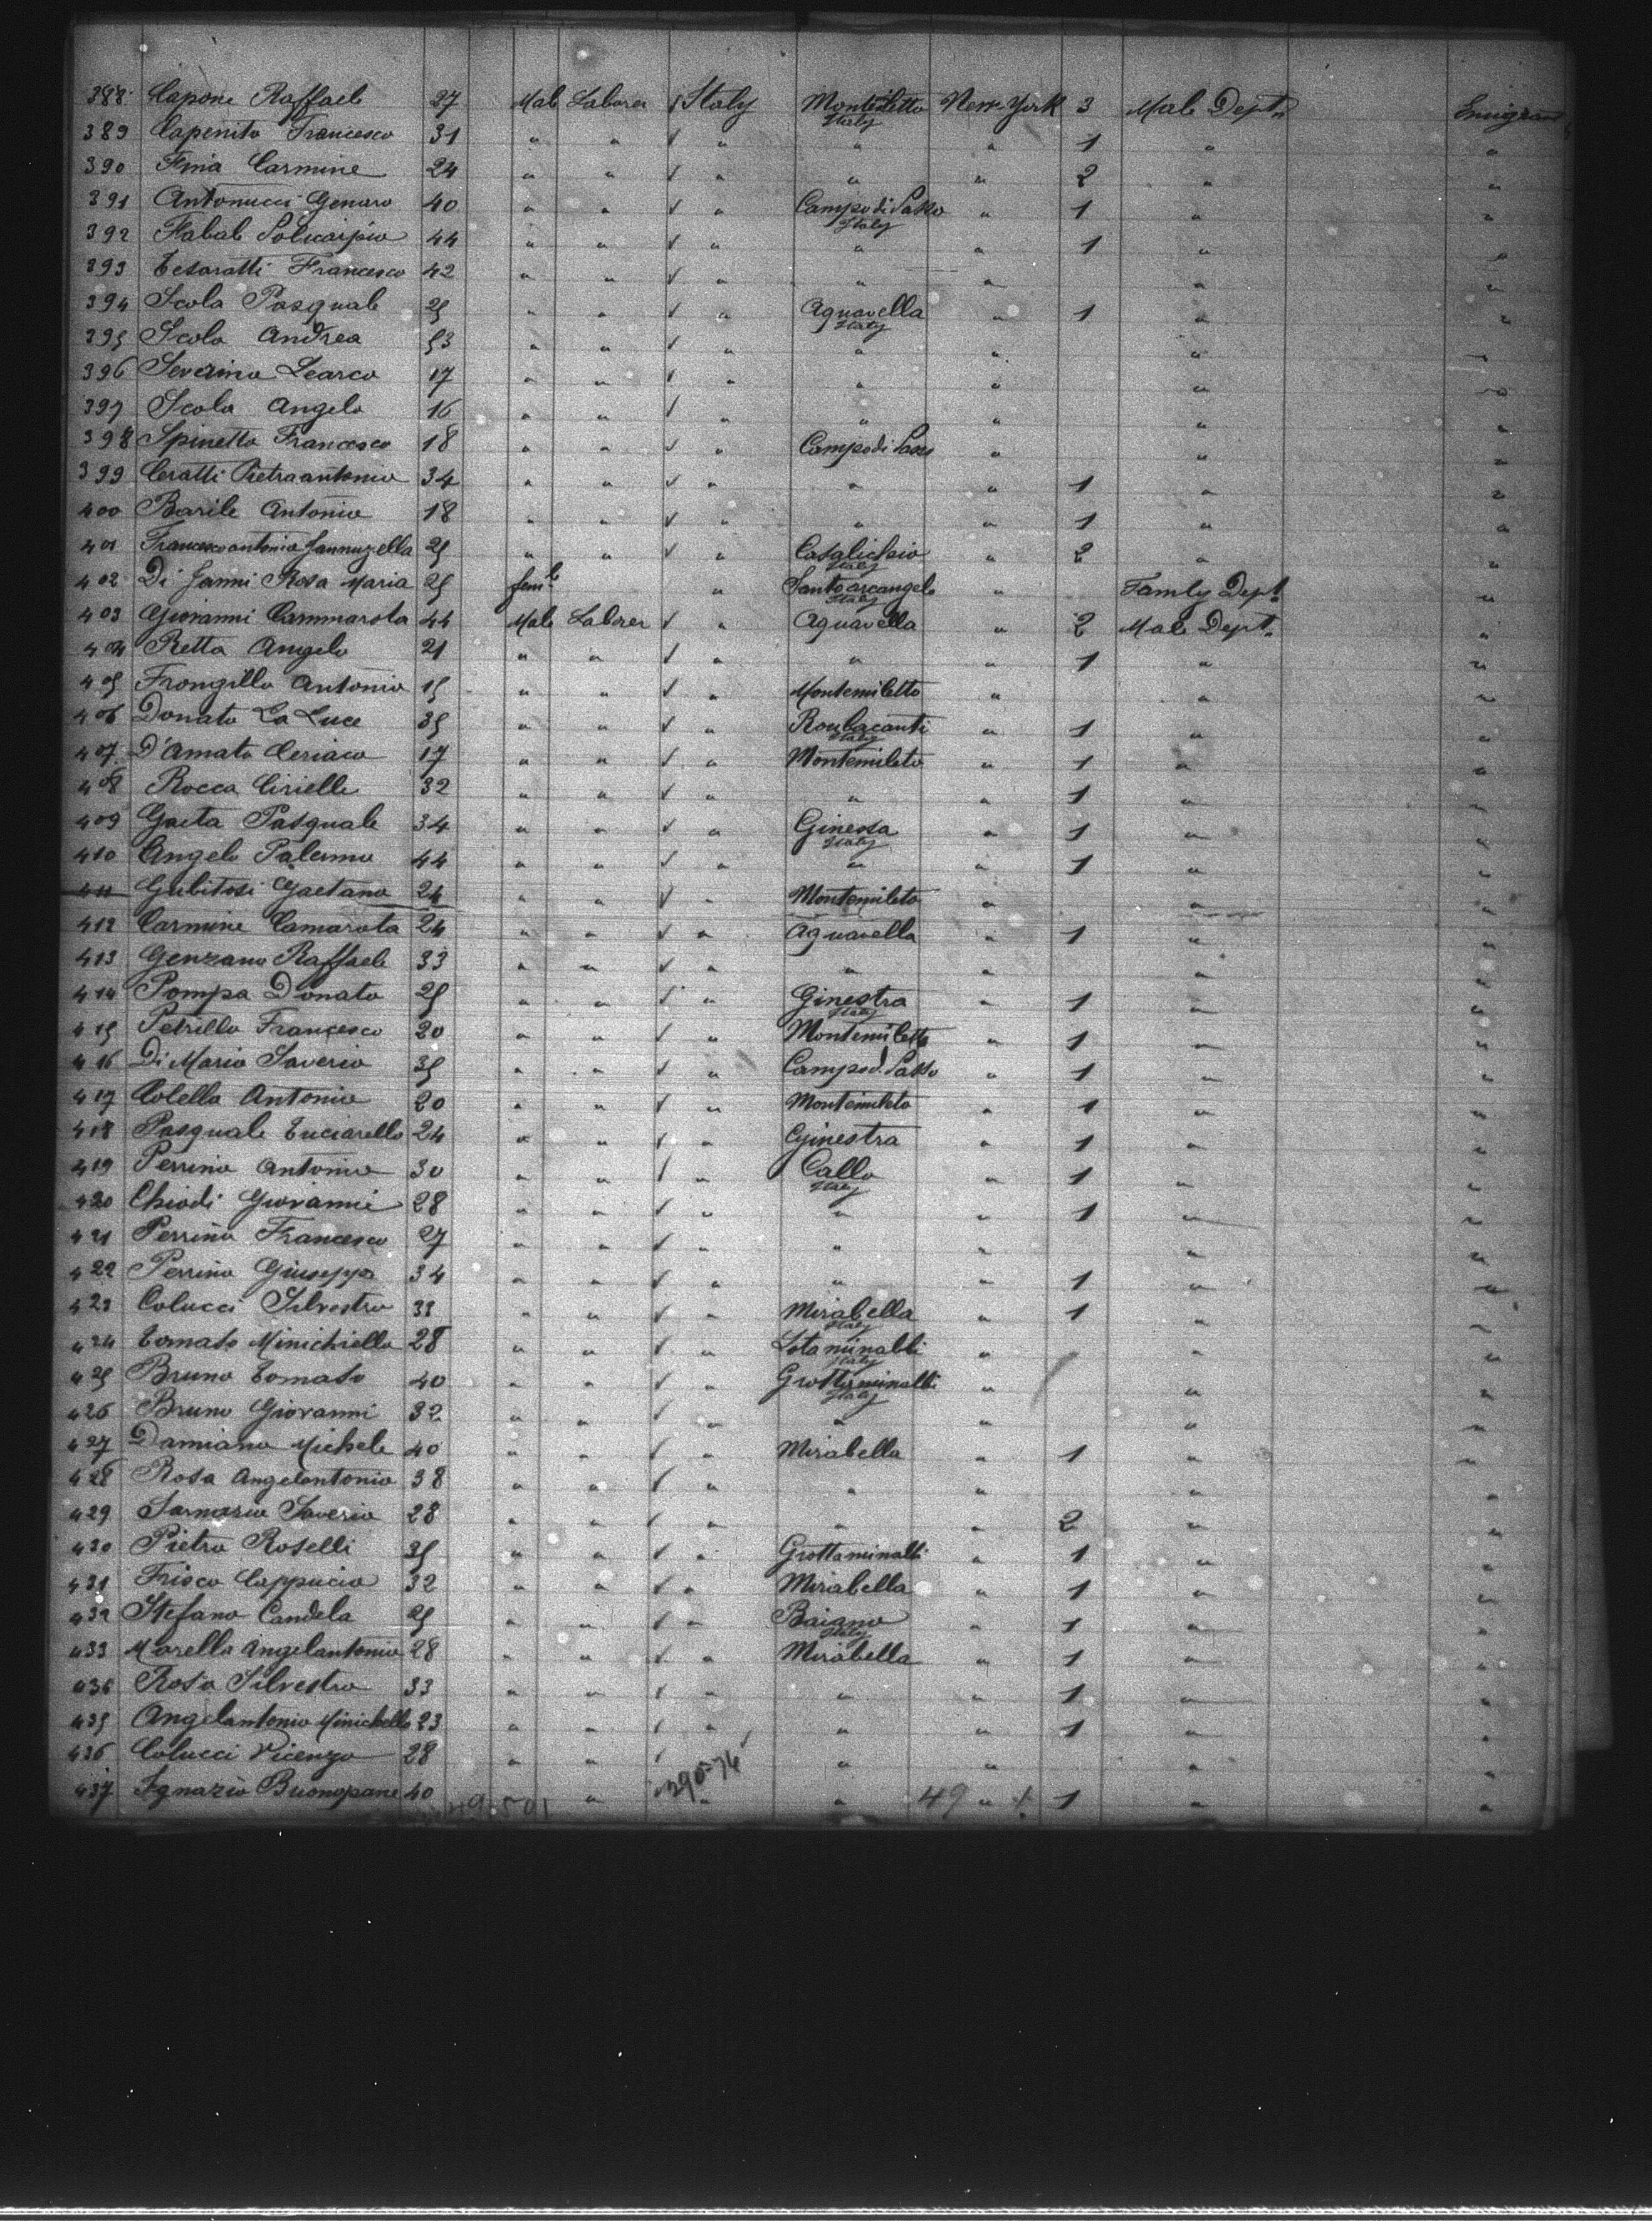 388 Capone Raffaele 27 Male Laborer √ Italy Montemiletto Italy New-York 3 Male Dept. Emigrant
389 Capenito Francesco 31 " " √ " " " 1 " "
390 Fina Carmine 24 " " √ " " " 2 " "
391 Antonucci Genaro 40 " " √ " Campo di Sasso Italy " 1 " "
392 44 " " √ " " " 1 " "
393 Francesco 42 " " √ " " " " "
394 Scola Pasquale 25 " " √ " Aquavella Italy " 1 " "
395 Scola Andrea 53 " " √ " " " " "
396 Severino Learco 17 " " √ " " " " "
397 Scola Angelo 16 " " √ " " " " "
398 Spinetta Francesco 18 " " √ " Campo di Sasso " " "
399 Ceratti Pietraantonio 34 " " √ " " " 1 " "
400 Barile Antonio 18 " " √ " " " 1 " "
401 Francescoantonio Jannuzella 25 " " √ " Casalichio Italy " 2 " "
402 Di Janni Rosa Maria 25 feml " Santo arcangelo Italy " Family Dept. "
403 Giovanni Cammarota 44 Male Laborer √ " Aquavella " 2 Male Dept. "
404 Retta Angelo 21 " " √ " " " 1 " "
405 Frongillo Antonio 15 " " √ " Montemiletto " " "
406 Donato La Luce 35 " " √ " Italy " 1 " "
407 D'Amato Ceriaco 17 " " √ " Montemileto " 1 " "
408 Rocca Cirielle 32 " " √ " " " 1 " "
409 Gaeta Pasquale 34 " " √ " Ginessa Italy " 1 " "
410 Angelo Palermo 44 " " √ " " " 1 " "
411 Gubitosi Gaetano 24 " " √ " Montemileto " " "
412 Carmine Camarota 24 " " √ " Aquavella " 1 " "
413 Genzano Raffaele 33 " " √ " " " " "
414 Pompa Donato 25 " " √ " Ginestra Italy " 1 " "
415 Petrillo Francesco 20 " " √ " Montemiletto " 1 " "
416 Di Mario Saverio 35 " " √ " Campo di Sasso " 1 " "
417 Colella Antonio 20 " " √ " Montemileto " 1 " "
418 Pasquale Tucciarello 24 " " √ " Ginestra " 1 " "
419 Perrino Antonio 30 " " √ " Callo Italy " 1 " "
420 Chiodi Giovanni 28 " " √ " " " 1 " "
421 Perrino Francesco 27 " " √ " " " " "
422 Perrino Giuseppe 34 " " √ " " " 1 " "
423 Colucci Silvestro 33 " " √ " Mirabella Italy " 1 " "
424 Tomaso Minichiello 28 " " √ " Italy " " "
425 Bruno Tomaso 40 " " √ " Grottaminalli Italy " " "
426 Bruno Giovanni 32 " " √ " " " " "
427 Damiano Michele 40 " " √ " Mirabella " 1 " "
428 Rosa Angelantonio 38 " " √ " " " " "
429 Sarnario Saverio 28 " " √ " " " 2 " "
430 Pietro Roselli 35 " " √ " Grottaminalli " 1 " "
431 Frisco Cappucio 32 " " √ " Mirabella " 1 " "
432 Stefano Candela 25 " " √ " Baiano Italy " 1 " "
433 Morello Angelantonio 28 " " √ " Mirabella " 1 " "
434 Rosa Silvestro 33 " " √ " " " 1 " "
435 Angelantonio Minichello 23 " " √ " " " 1 " "
436 Colucci Vicenzo 28 " " √ " " " "
437 Ignazio Buonopane 40 " " " 49 " 1 " "